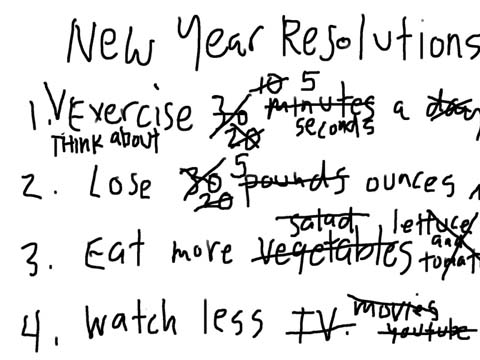 New Year Resolutions
10 5
1. Exercise 30 minutes a day
Think about 20 seconds
5
2. Lose 30 pounds ounces
20
salad lettuce
and
3. Eat more vegetables tomat
movies
4. Watch less T.V.
youtube